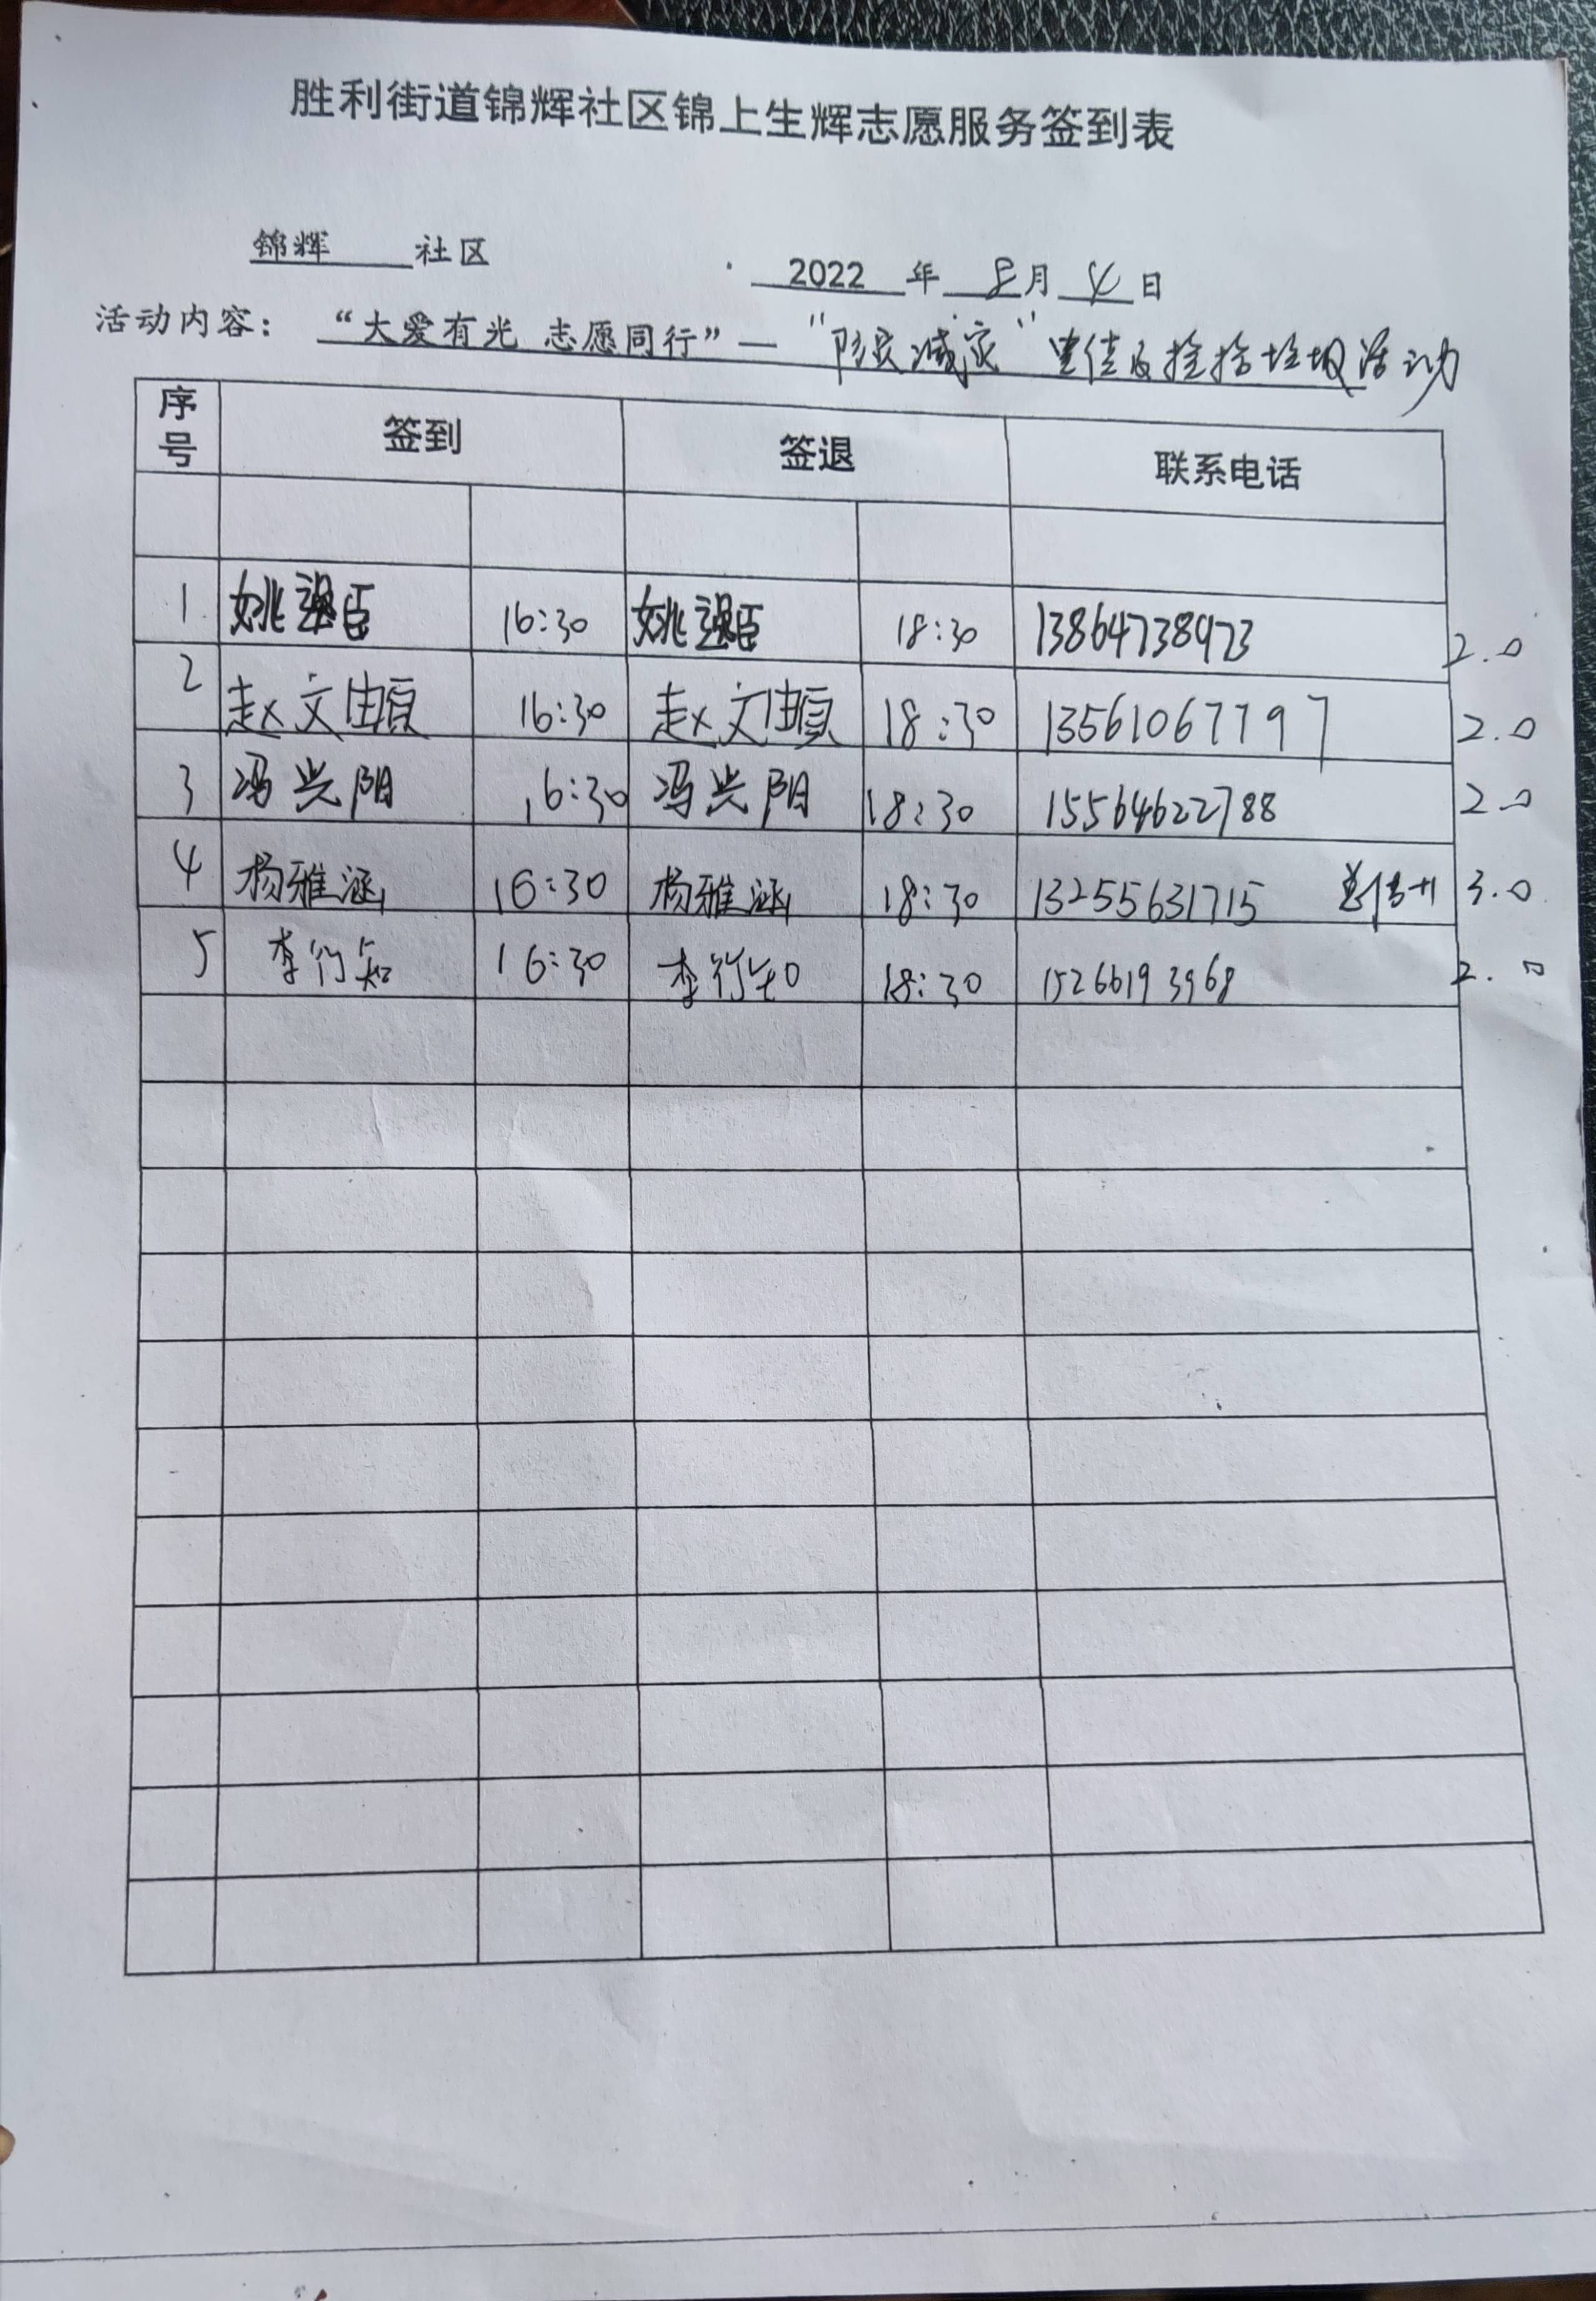 胜利街道锦辉社区锦上生辉志愿服务签到表
锦辉 社区
2022 年 8 月 4 日
活动内容： “大爱有光 志愿同行”— “防灾减灾” 宣传及捡拾垃圾活动
序号 签到 签退 联系电话
1 姚 臣 16:30 姚 臣 18:30 13864738973 2.0
2 赵文 16:30 赵文 18:30 13561067797 2.0
3 冯兴阳 16:30 冯兴阳 18:30 15564622788 2.0
4 杨雅涵 16:30 杨雅涵 18:30 13255631715 +1 3.0
5 李行知 16:30 李行知 18:30 15266193968 2.0